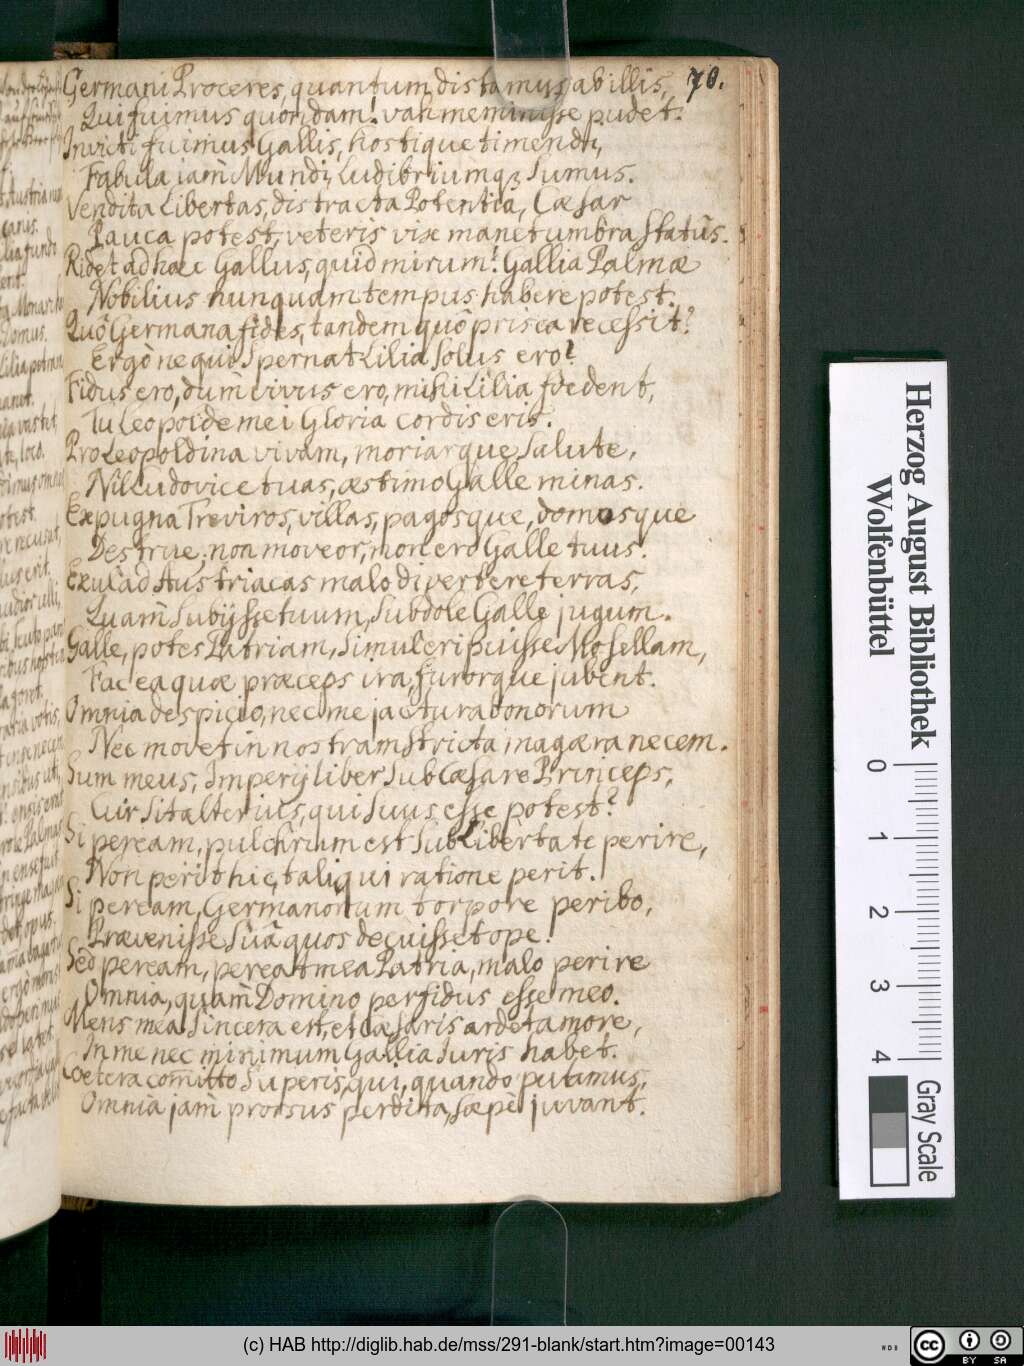 Germani Proceres, quantum distamus ab illis, 70.
Qui fuimus quondam! vah meminisse pudet.
Invicti fuimus Gallis, hostique timendi,
Fabula iam Mundi, Ludibriumq; Sumus.
Vendita Libertas, distracta Potentia, Cæsar
Pauca potest, veteris vix manet umbra Statûs.
Ridet ad hæc Gallus, quid mirum? Gallia Palmæ
Nobilius nunquam tempus habere potest.
Quô Germana fides, tandem quô prisca recessit?
Ergò nequi Spernat Lilia solus ero?
Fidus ero, dum vivus ero, mihi Lilia foedent,
Tu Leopolde mei Gloria cordis eris.
Pro Leopoldina vivam, moriarque Salute,
Nil Ludovice tuas, æstimo Galle minas.
Expugna Treviros, villas, pagosque, domosque
Destrue; non moveor, non ero Galle tuus.
Exul ad Austriacas malo divertere terras,
Quam Subijsse tuum, Subdole Galle jugum.
Galle, potes Patriam, Simul eripuisse Mosellam,
Fac ea quæ præceps ira, furorque jubent.
Omnia despicio, nec me jactura bonorum
Nec movet in nostram Stricta magæra necem.
Sum meus, Imperij liber Sub Cæsare Princeps,
Cur Sit alterius, qui Suus esse potest?
Si peream, pulchrum est Sub Libertate perire,
Non perit hic, tali qui ratione perit.
Si peream, Germanorum torpore peribo,
Prævenisse Suâ quos decuisset ope.
Sed peream, pereat mea Patria, malo perire
Omnia, quam Domino perfidus esse meo.
Mens mea Sincera est, et Cæsaris ardet amore,
In me nec minimum Gallia Iuris habet.
Coetera com̄itto Superis, qui, quando putamus,
Omnia jam prorsus perdita, sæpè juvant.
Herzog August Bibliothek
Wolfenbüttel
0 1 2 3 4
Gray Scale
(c) HAB http://diglib.hab.de/mss/291-blank/start.htm?image=00143
WDB
cc BY SA